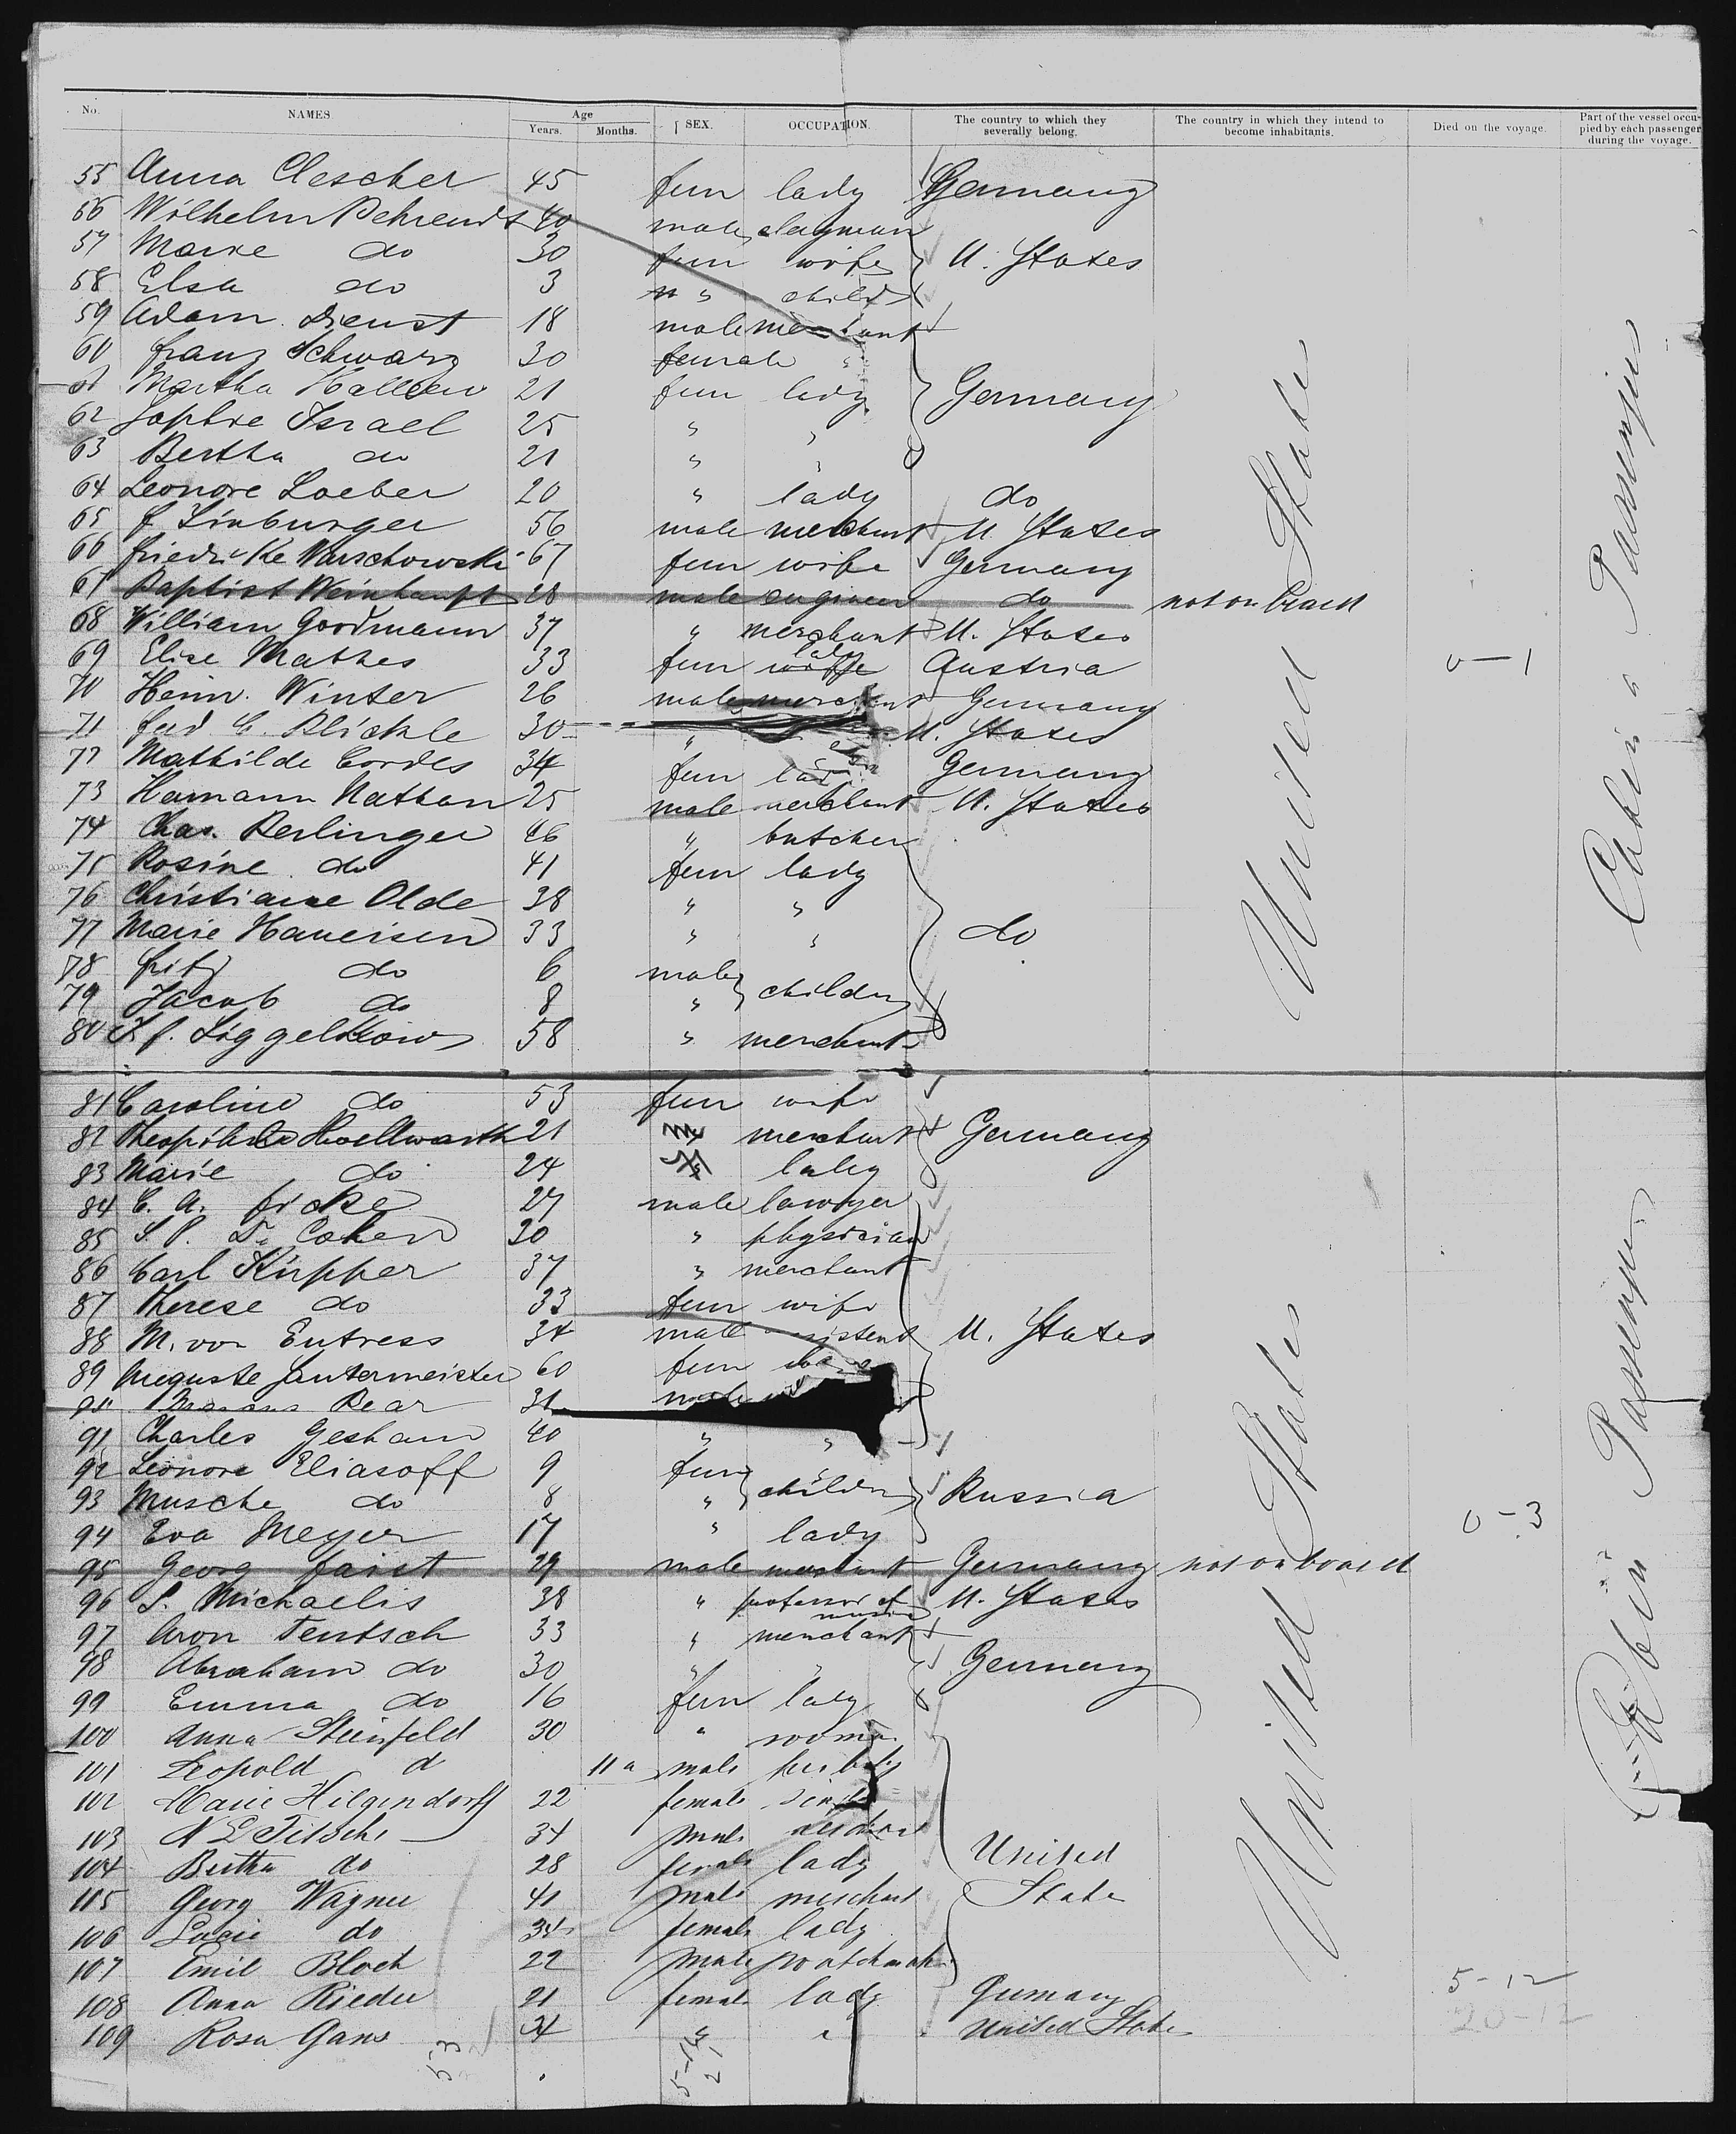 No. NAMES Age Years. Months. SEX. OCCUPATION. The country to which they severally belong. The country in which they intend to become inhabitants. Died on the voyage. Part of the vessel occupied by each passenger during the voyage.
55 Anna Clescher 45 fem lady Germany
56 Wilhelm Behrendt 40 male clegman
57 Marie do 30 fem wife U. States
58 Elsa do 3 " child
59 Adam Dienst 18 male merchant
60 Franz Schwarz 30 female "
61 Martha 21 fem lady Germany
62 Sophie Israel 25 " "
63 Bertha do 21 " "
64 Leonore Loeber 20 " lady do
65 F Linburger 56 male merchant U. States
66 Friedrike Warschowski 67 fem wife Germany
67 Baptist Weinhaupt 28 male engineer do not on board
68 William Goodmann 37 " merchant U. States
69 Elise Mathes 33 fem lady Austria 0-1
70 Heinr. Winter 26 male merchant Germany
71 Ferd C. Blickle 30 " U. States
72 Mathilde Cordes 34 fem lady Germany
73 Hamann Nathan 25 male merchant U. States
74 Chas. Berlinger 46 " butcher
75 Rosine do 41 fem lady
76 Christiane Olde 38 " "
77 Marie Haueisen 33 " " do
78 Fritz do 6 male
79 Jacob do 8 " children
80 J. F. Siggelkow 58 " merchant
United States
Cabin Passengers
81 Caroline do 53 fem wife
82 Hollwarth 21 merchant Germany
83 Marie do 24 lady
84 C. A. Ficke 27 male lawyer
85 S. P. D. Cohen 30 " physician
86 Carl Küpper 37 " merchant
87 Therese do 33 fem wife
88 M. von Entress 34 male U. States
89 Auguste Santermeister 60 fem
90 Bear 31 male
91 Charles Gesham 40 " "
92 Leonore Eliasoff 9 fem
93 Musche do 8 " children Russia
94 Eva Meyer 17 " lady 0-3
95 Georg Faist 29 male merchant Germany not on board
96 S. Michaelis 38 " professor of music U. States
97 Aron Tentsch 33 " merchant
98 Abraham do 30 " " Germany
99 Emma do 16 fem lady
100 Anna Steinfeld 30 " woman
101 Leopold d 11 male her baby
102 Marie Hilgendorff 22 female
103 N L Titsche 34 male
104 Bertha do 28 female lady United
105 Georg Wagner 41 male merchant State
106 Lucie do 34 female lady
107 Emil Bloch 22 male watchmak
108 Anna Rieder 21 female lady Germany 5-12
109 Rosa Gans 24 " " United States 20-12
United States
Cabin Passengers
53